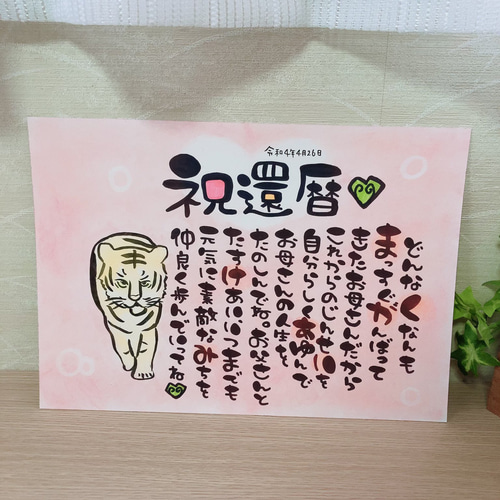 令和4年4月26日
祝還暦
どんなくなんも
まっすぐがんばって
きたお母さんだから
これからのじんせいも
自分らしくあゆんで
お母さんの人生を
たのしんでね。お父さんと
たすけあいいつまでも
元気に素敵なみちを
仲良く歩んでいってね